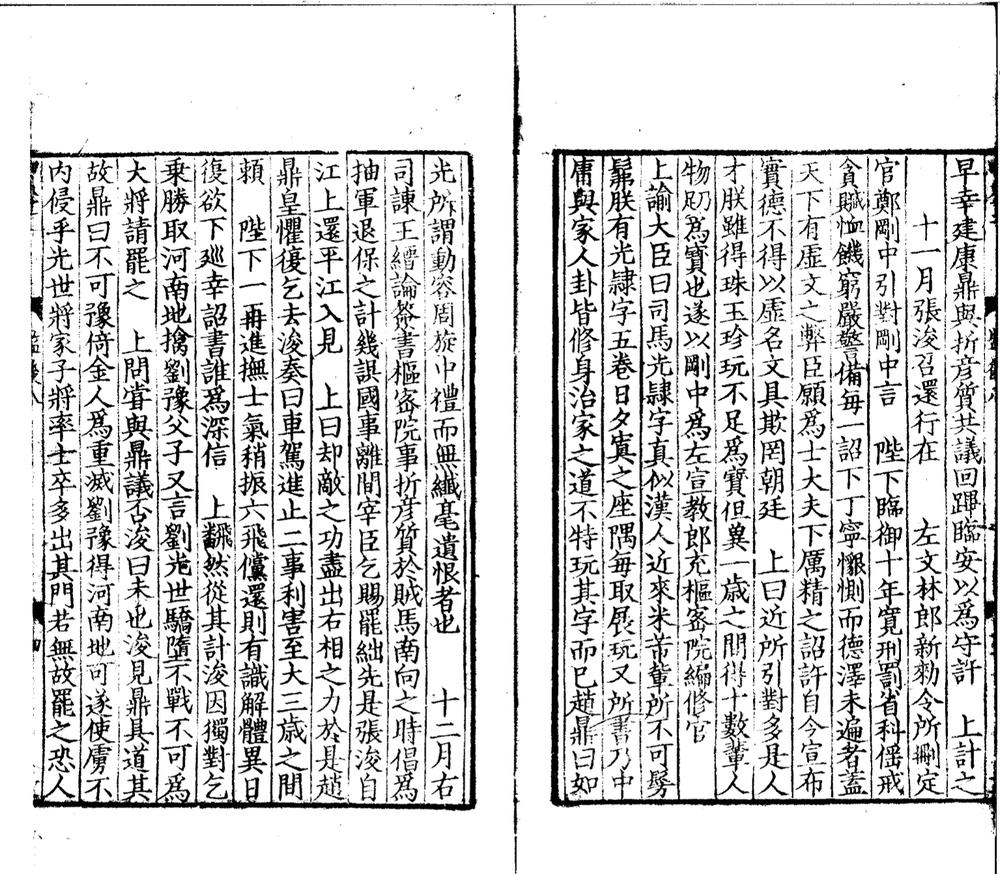 早幸建康鼎與折彥質共議回蹕臨安以爲守計　上計之
十一月張浚召還行在　左文林郎新勑令所刪定
官鄭剛中引對剛中言　陛下臨御十年寬刑罰省科傜戒
貪贓恤饑窮嚴警備每一詔下丁寧懇惻而德澤未遍者蓋
天下有虛文之弊臣願爲士大夫下厲精之詔許自今宣布
實德不得以虛名文具欺罔朝廷　上曰近所引對多是人
才朕雖得珠玉珍玩不足爲寶但兾一歲之間得十數輩人
物乃爲寶也遂以剛中爲左宣教郎充樞密院編修官
上諭大臣曰司馬光隸字真似漢人近來米芾輩所不可髣
髴朕有光隸字五卷日夕寘之座隅每取展玩又所書乃中
庸與家人卦皆修身治家之道不特玩其字而已趙鼎曰如
光所謂動容周旋中禮而無纖毫遺恨者也　十二月右
司諫王縉論簽書樞密院事折彥質於賊馬南向之時倡爲
抽軍退保之計幾誤國事離間宰臣乞賜罷絀先是張浚自
江上還平江入見　上曰却敵之功盡出右相之力於是趙
鼎皇懼復乞去浚奏曰車駕進止二事利害至大三歲之間
賴　陛下一再進撫士氣稍振六飛儻還則有識解體異日
復欲下廵幸詔書誰爲深信　上飜然從其計浚因獨對乞
乗勝取河南地擒劉豫父子又言劉光世驕隋不戰不可爲
大將請罷之　上問嘗與鼎議否浚曰未也浚見鼎具道其
故鼎曰不可豫倚金人爲重滅劉豫得河南地可遂使虜不
內侵乎光世將家子將率士卒多出其門若無故罷之恐人